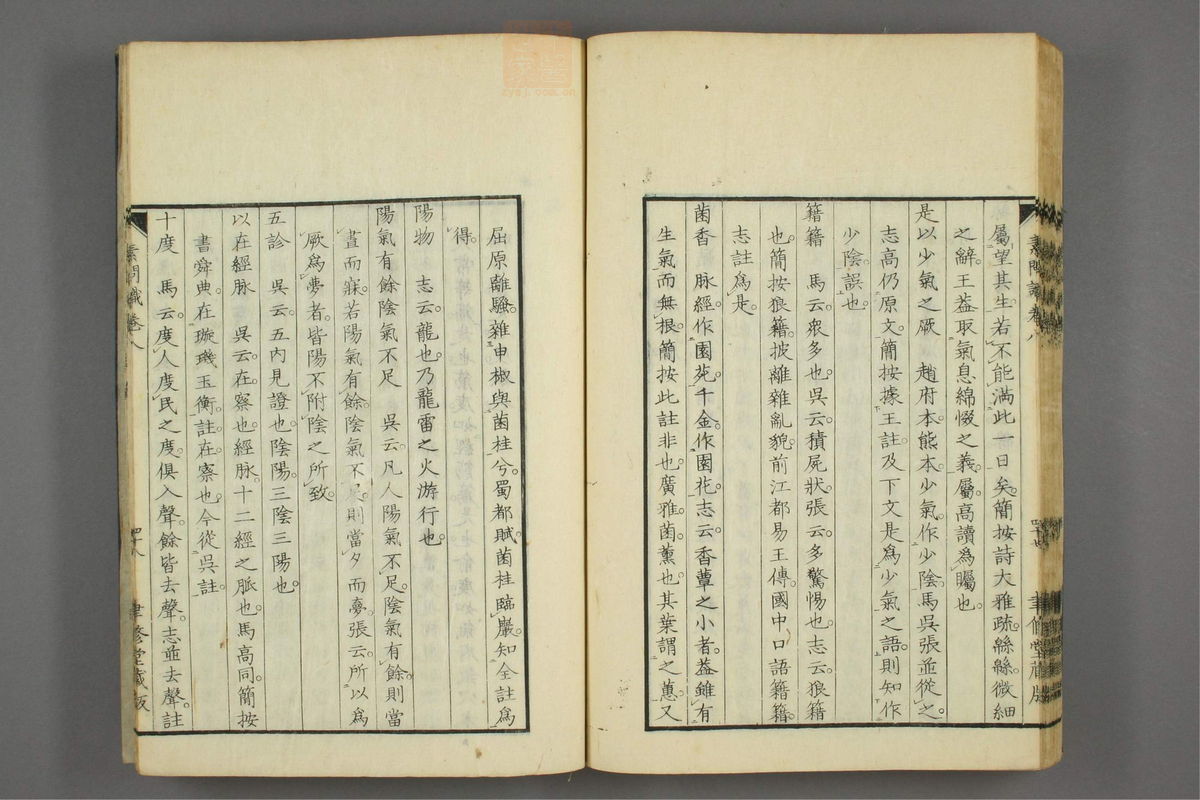 屬望其生若不能滿此一日矣簡按詩大雅疏緜緜微細
之辭王葢取氣息綿惙之義屬高讀爲矚也
是以少氣之厥 趙府本熊本少氣作少陰馬吳張並從之
志高仍原文簡按據王註及下文是爲少氣之語則知作
少陰誤也
籍籍 馬云衆多也吳云積屍狀張云多驚惕也志云狼籍
也簡按狼籍披離雜亂貌前江都易王傳國中口語籍籍
志註爲是
菌香 脉經作園苑千金作園花志云香蕈之小者葢雖有
生氣而無根簡按此註非也廣雅菌薰也其葉謂之蕙又
屈原離騷雜申椒與菌桂兮蜀都賦菌桂臨巖知全註爲
得
陽物 志云龍也乃龍雷之火游行也
陽氣有餘陰氣不足 吳云凡人陽氣不足陰氣有餘則當
晝而寐若陽氣有餘陰氣不足則當夕而寢張云所以爲
厥爲夢者皆陽不附陰之所致
五診 吳云五內見證也陰陽三陰三陽也
以在經脉 吳云在察也經脉十二經之脈也馬高同簡按
書舜典在璇璣玉衡註在察也今從吳註
十度 馬云度人度民之度俱入聲餘皆去聲志並去聲註
素問識卷八 四十八 聿修堂藏版